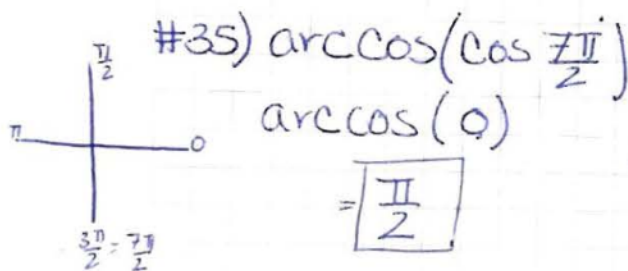 #35) arccos(cos 7π/2)
arccos(0)
= π/2
π/2
π
0
3π/2 = 7π/2